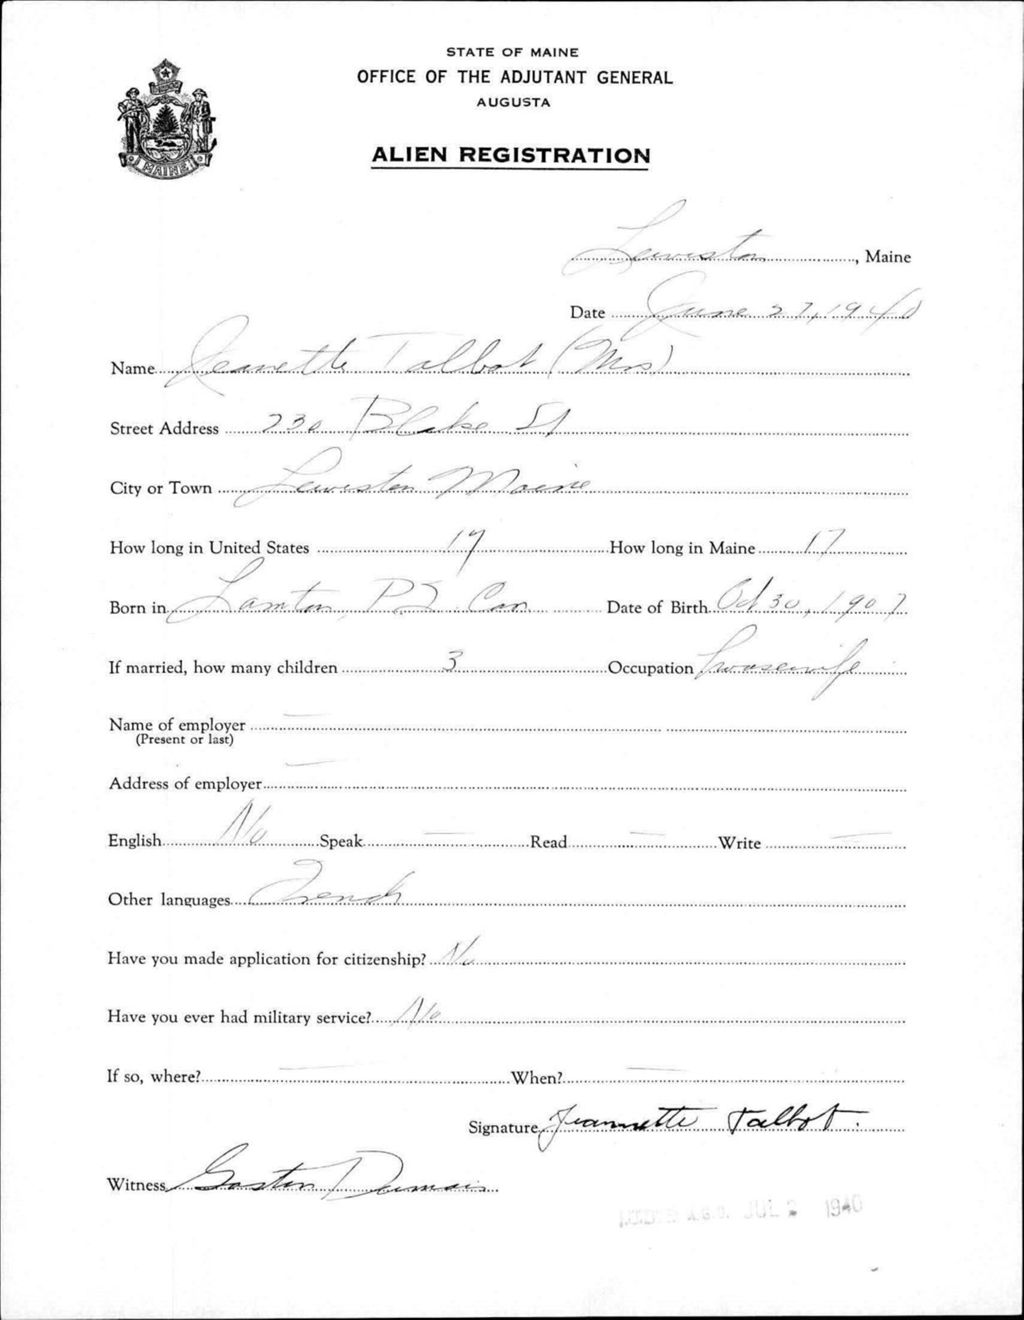 STATE OF MAINE
OFFICE OF THE ADJUTANT GENERAL
AUGUSTA
ALIEN REGISTRATION
MAINE
Lewiston, Maine
Date June 27, 1940
Name Jeanette Talbot (Mrs)
Street Address 230 Blake St
City or Town Lewiston Maine
How long in United States 17 How long in Maine 17
Born in P2 Can Date of Birth Oct 30, 1907
If married, how many children 3 Occupation housewife
Name of employer
(Present or last)
Address of employer
English No Speak Read Write
Other languages French
Have you made application for citizenship? No
Have you ever had military service? No
If so, where? When?
Signature Jeannette Talbot.
Witness Gaston Dumais
A.G.O. JUL 2 1940